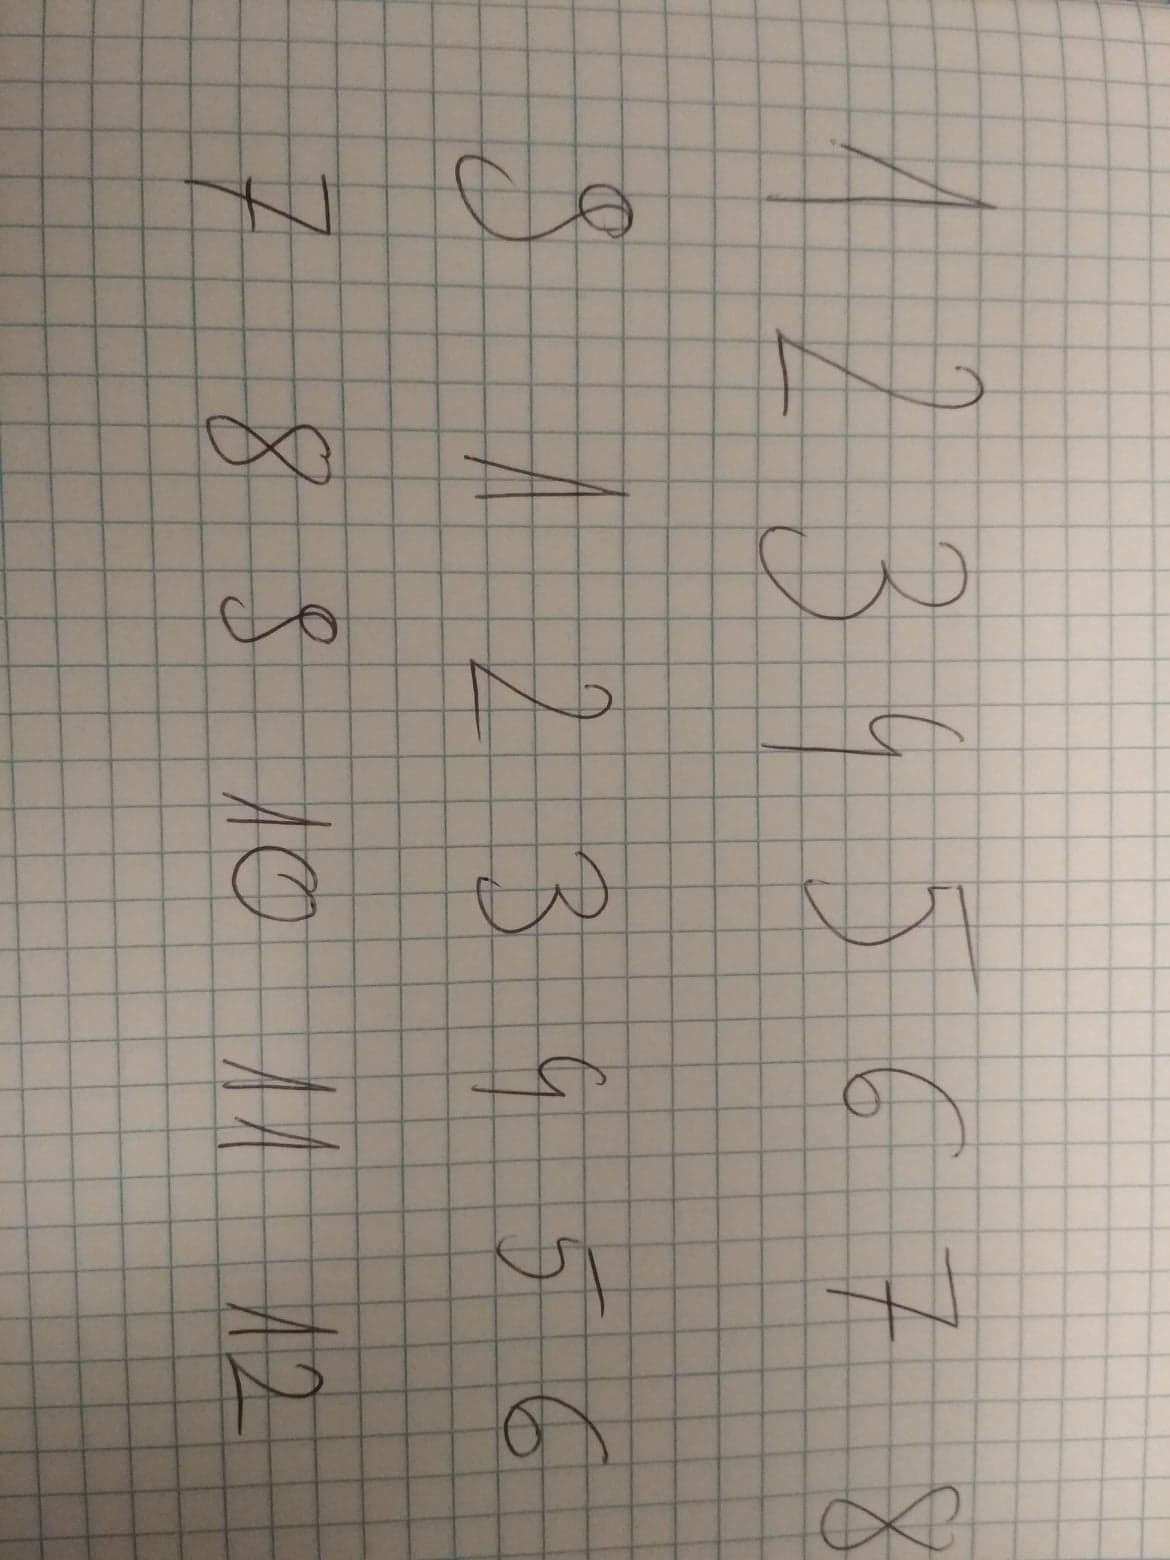 1 2 3 4 5 6 7 8
9 1 2 3 4 5 6
7 8 9 10 11 12